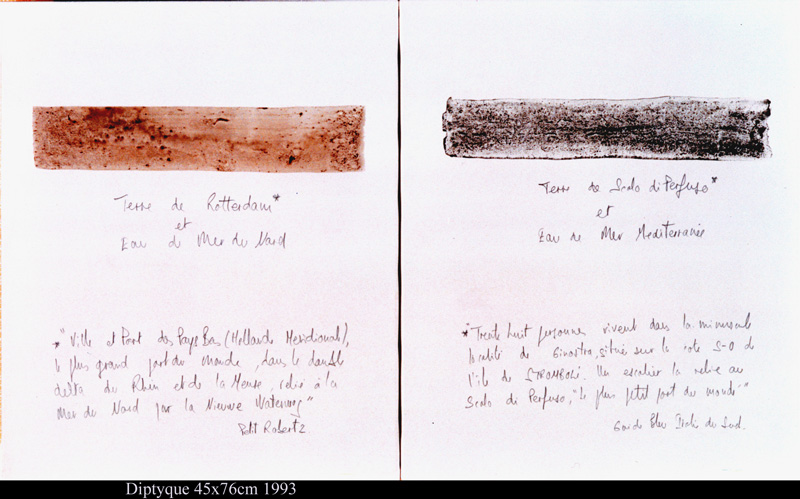 Terre de Rotterdam*
et
Eau de Mer du Nord
*"Ville et Port des Pays Bas (Hollande Méridionale),
le plus grand port du monde, dans le double
delta du Rhin et de la Meuse, relié à la
Mer du Nord par la Nieuwe Waterweg"
Petit Robert 2.
Terre de Scalo di Perfuso*
et
Eau de Mer Mediterranée
*"Trente huit personnes vivent dans la minuscule
localité de Ginostra, située sur la cote S-O de
l'ile de STROMBOLI. Un escalier la relie au
Scalo di Perfuso, "le plus petit port du monde""
Guide Bleu Italie du Sud.
Diptyque 45x76cm 1993